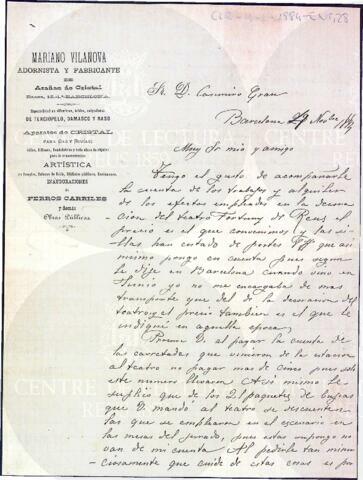 MARIANO VILANOVA
ADORNISTA Y FABRICANTE
DE
Arañas de Cristal
BARCELONA
DE TERCIOPELO, DAMASCO Y RASO
Aparatos de CRISTAL
PARA GAS Y BUJÍAS
ARTÍSTICA
INAUGURACIONES
DE
FERROS CARRILES
y demás
Obras Públicas
Sr. D. Casimiro Grau
Barcelona 29 Novbre
Muy Sr mio y amigo
Tengo el gusto de acompañarle
la cuenta de los trabajos y alquiler
de los efectos empleados en la decora
cion del teatro Fortuny de Reus el
precio es el que convenimos y las si-
llas han costado de portes que asi
mismo pongo en cuenta pues segun
le dije en Barcelona cuando vino en
Junio yo no me encargaba de mas
transporte que del de la decoracion del
teatro y el precio tambien es el que le
indiqué en aquella epoca;
D. al pagar la cuenta de
las carretadas que vinieron de la estacion
al teatro no pagar mas de cinco pues solo
este numero llevaron Asi mismo le
suplico que de los 21 paquetes de bugias
que D. mandó al teatro se descuenten
las que se emplearon en el escenario en
las mesas del jurado, pues estas supongo no
van de mi cuenta Al pedirle tan minu
ciosamente que cuide de estas cosas es por